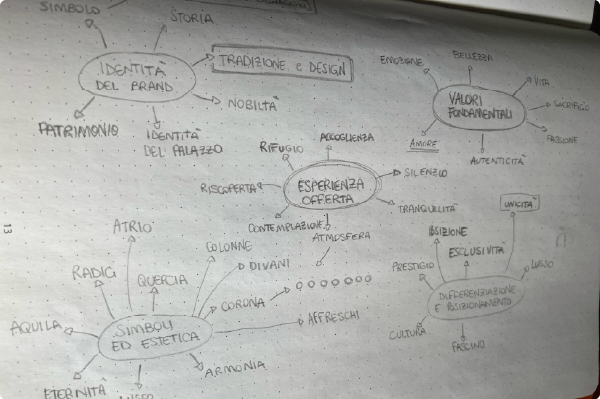 SIMBOLO
STORIA
IDENTITÀ
DEL BRAND
TRADIZIONE e DESIGN
NOBILTÀ
PATRIMONIO
IDENTITÀ
DEL PALAZZO
EMOZIONE
BELLEZZA
VITA
SACRIFICIO
PASSIONE
VALORI
FONDAMENTALI
AMORE
AUTENTICITÀ
RIFUGIO
ACCOGLIENZA
SILENZIO
RISCOPERTA
ESPERIENZA
OFFERTA
TRANQUILLITÀ
CONTEMPLAZIONE
ATMOSFERA
13
ATRIO
COLONNE
RADICI
QUERCIA
DIVANI
CORONA
AFFRESCHI
AQUILA
SIMBOLI
ED ESTETICA
ARMONIA
ETERNITÀ
UNICITÀ
POSIZIONE
ESCLUSIVITÀ
PRESTIGIO
LUSSO
DIFFERENZIAZIONE
E POSIZIONAMENTO
CULTURA
FASCINO